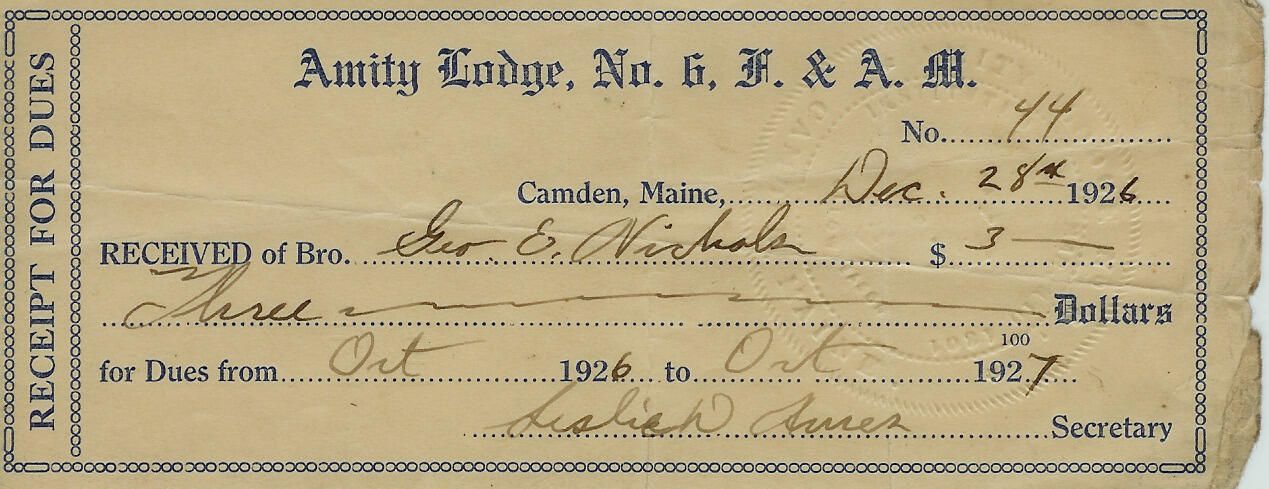 RECEIPT FOR DUES
Amity Lodge, No. 6, F. & A. M.
No. 44
Camden, Maine, Dec. 28th 1926
RECEIVED of Bro. Geo. E. Nichols $ 3
Three Dollars
100
for Dues from Oct 1926 to Oct 1927
Secretary